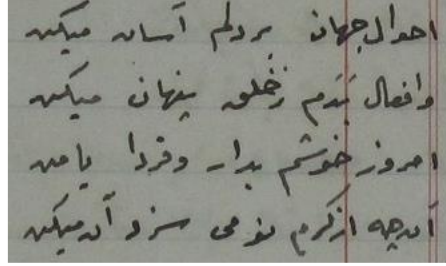 احوال جهان بر دلم آسان میکن
وافعال بدم ز خلق پنهان میکن
امروز خوشم بدار و فردا با من
آنچه از کرم تو می سزد آن میکن